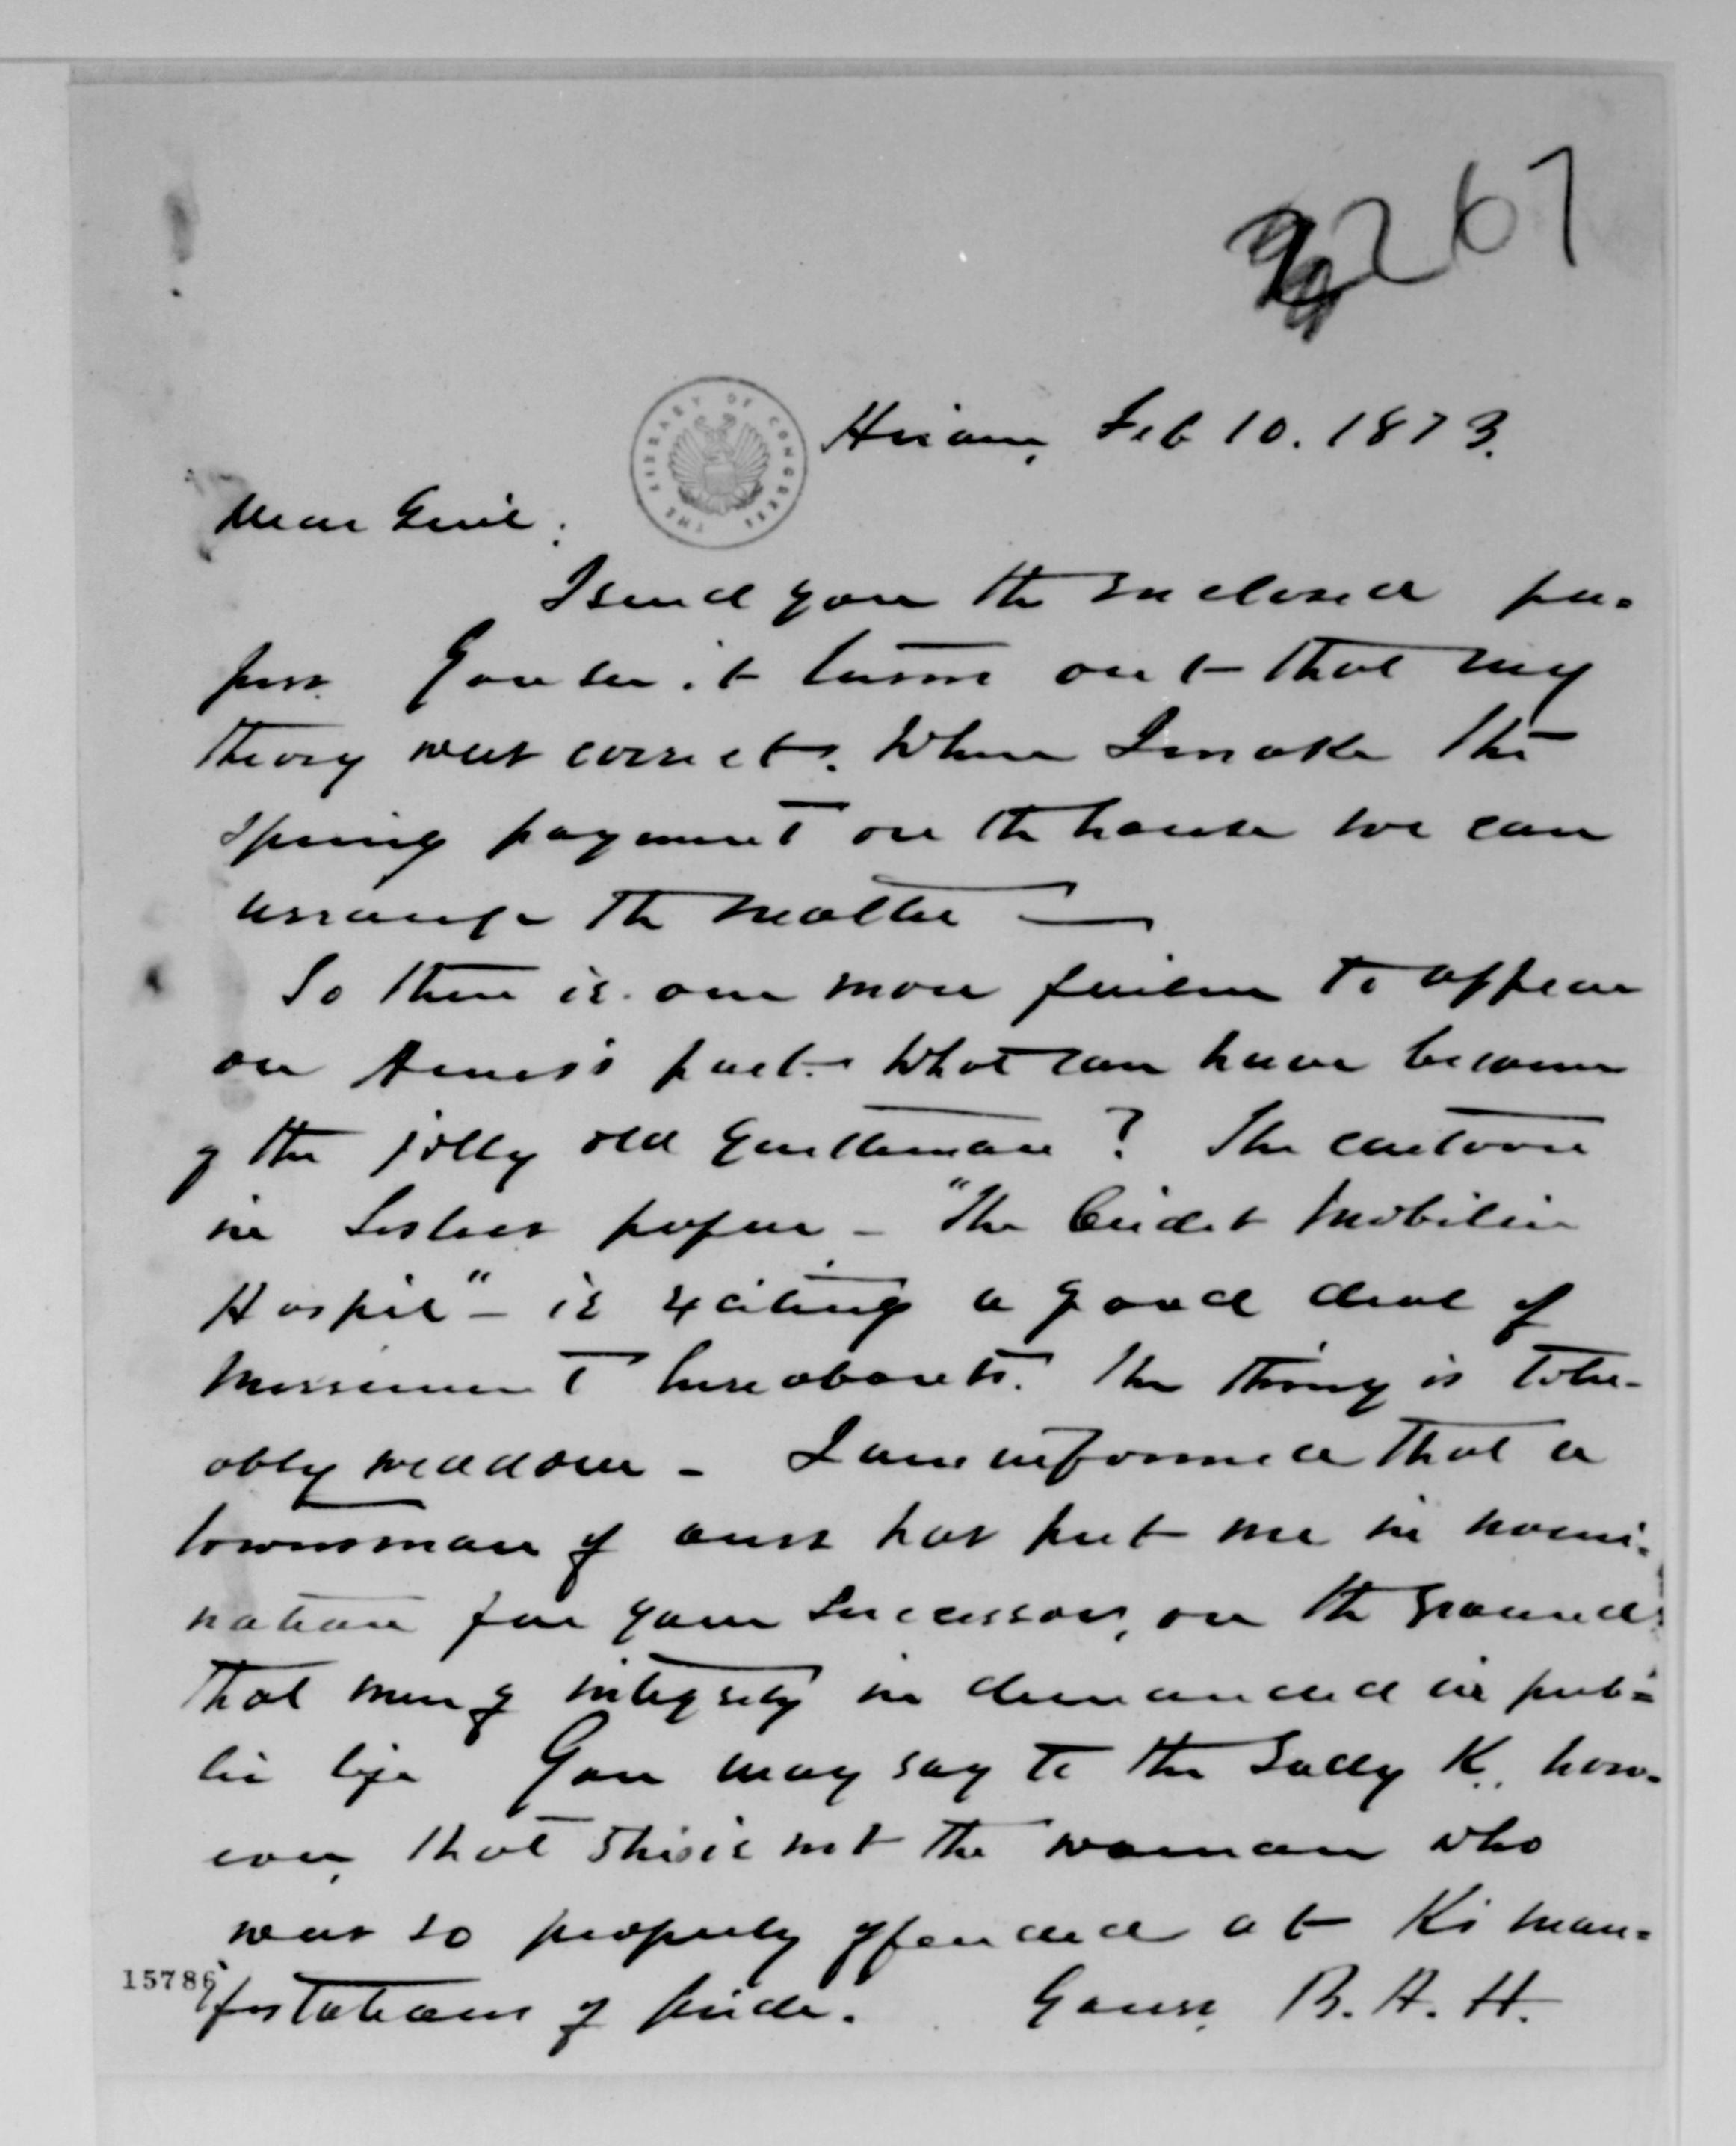 267
THE LIBRARY OF CONGRESS
Hiram, Feb 10. 1873.
Dear Genl:
I send you the enclosed pa-
pers. You see it turns out that my
theory was correct. When I make the
Spring payment on the house we can
arrange the matter —
So there is one more failure to appear
on Ames's part. What can have become
of the jolly old gentleman? The cartoon
in Leslies paper - "The Credit Mobilier
Hospital" - is exciting a good deal of
merriment hereabouts. The thing is toler-
ably well done - I am informed that a
townsman of ours has put me in nomi-
nation for your successor, on the ground
that men of integrity is demanded in pub-
lic life You may say to the Lady K. how-
ever, that this is not the woman who
was so properly offended at K's man-
ifestations of pride. Yours, B. A. H.
15786